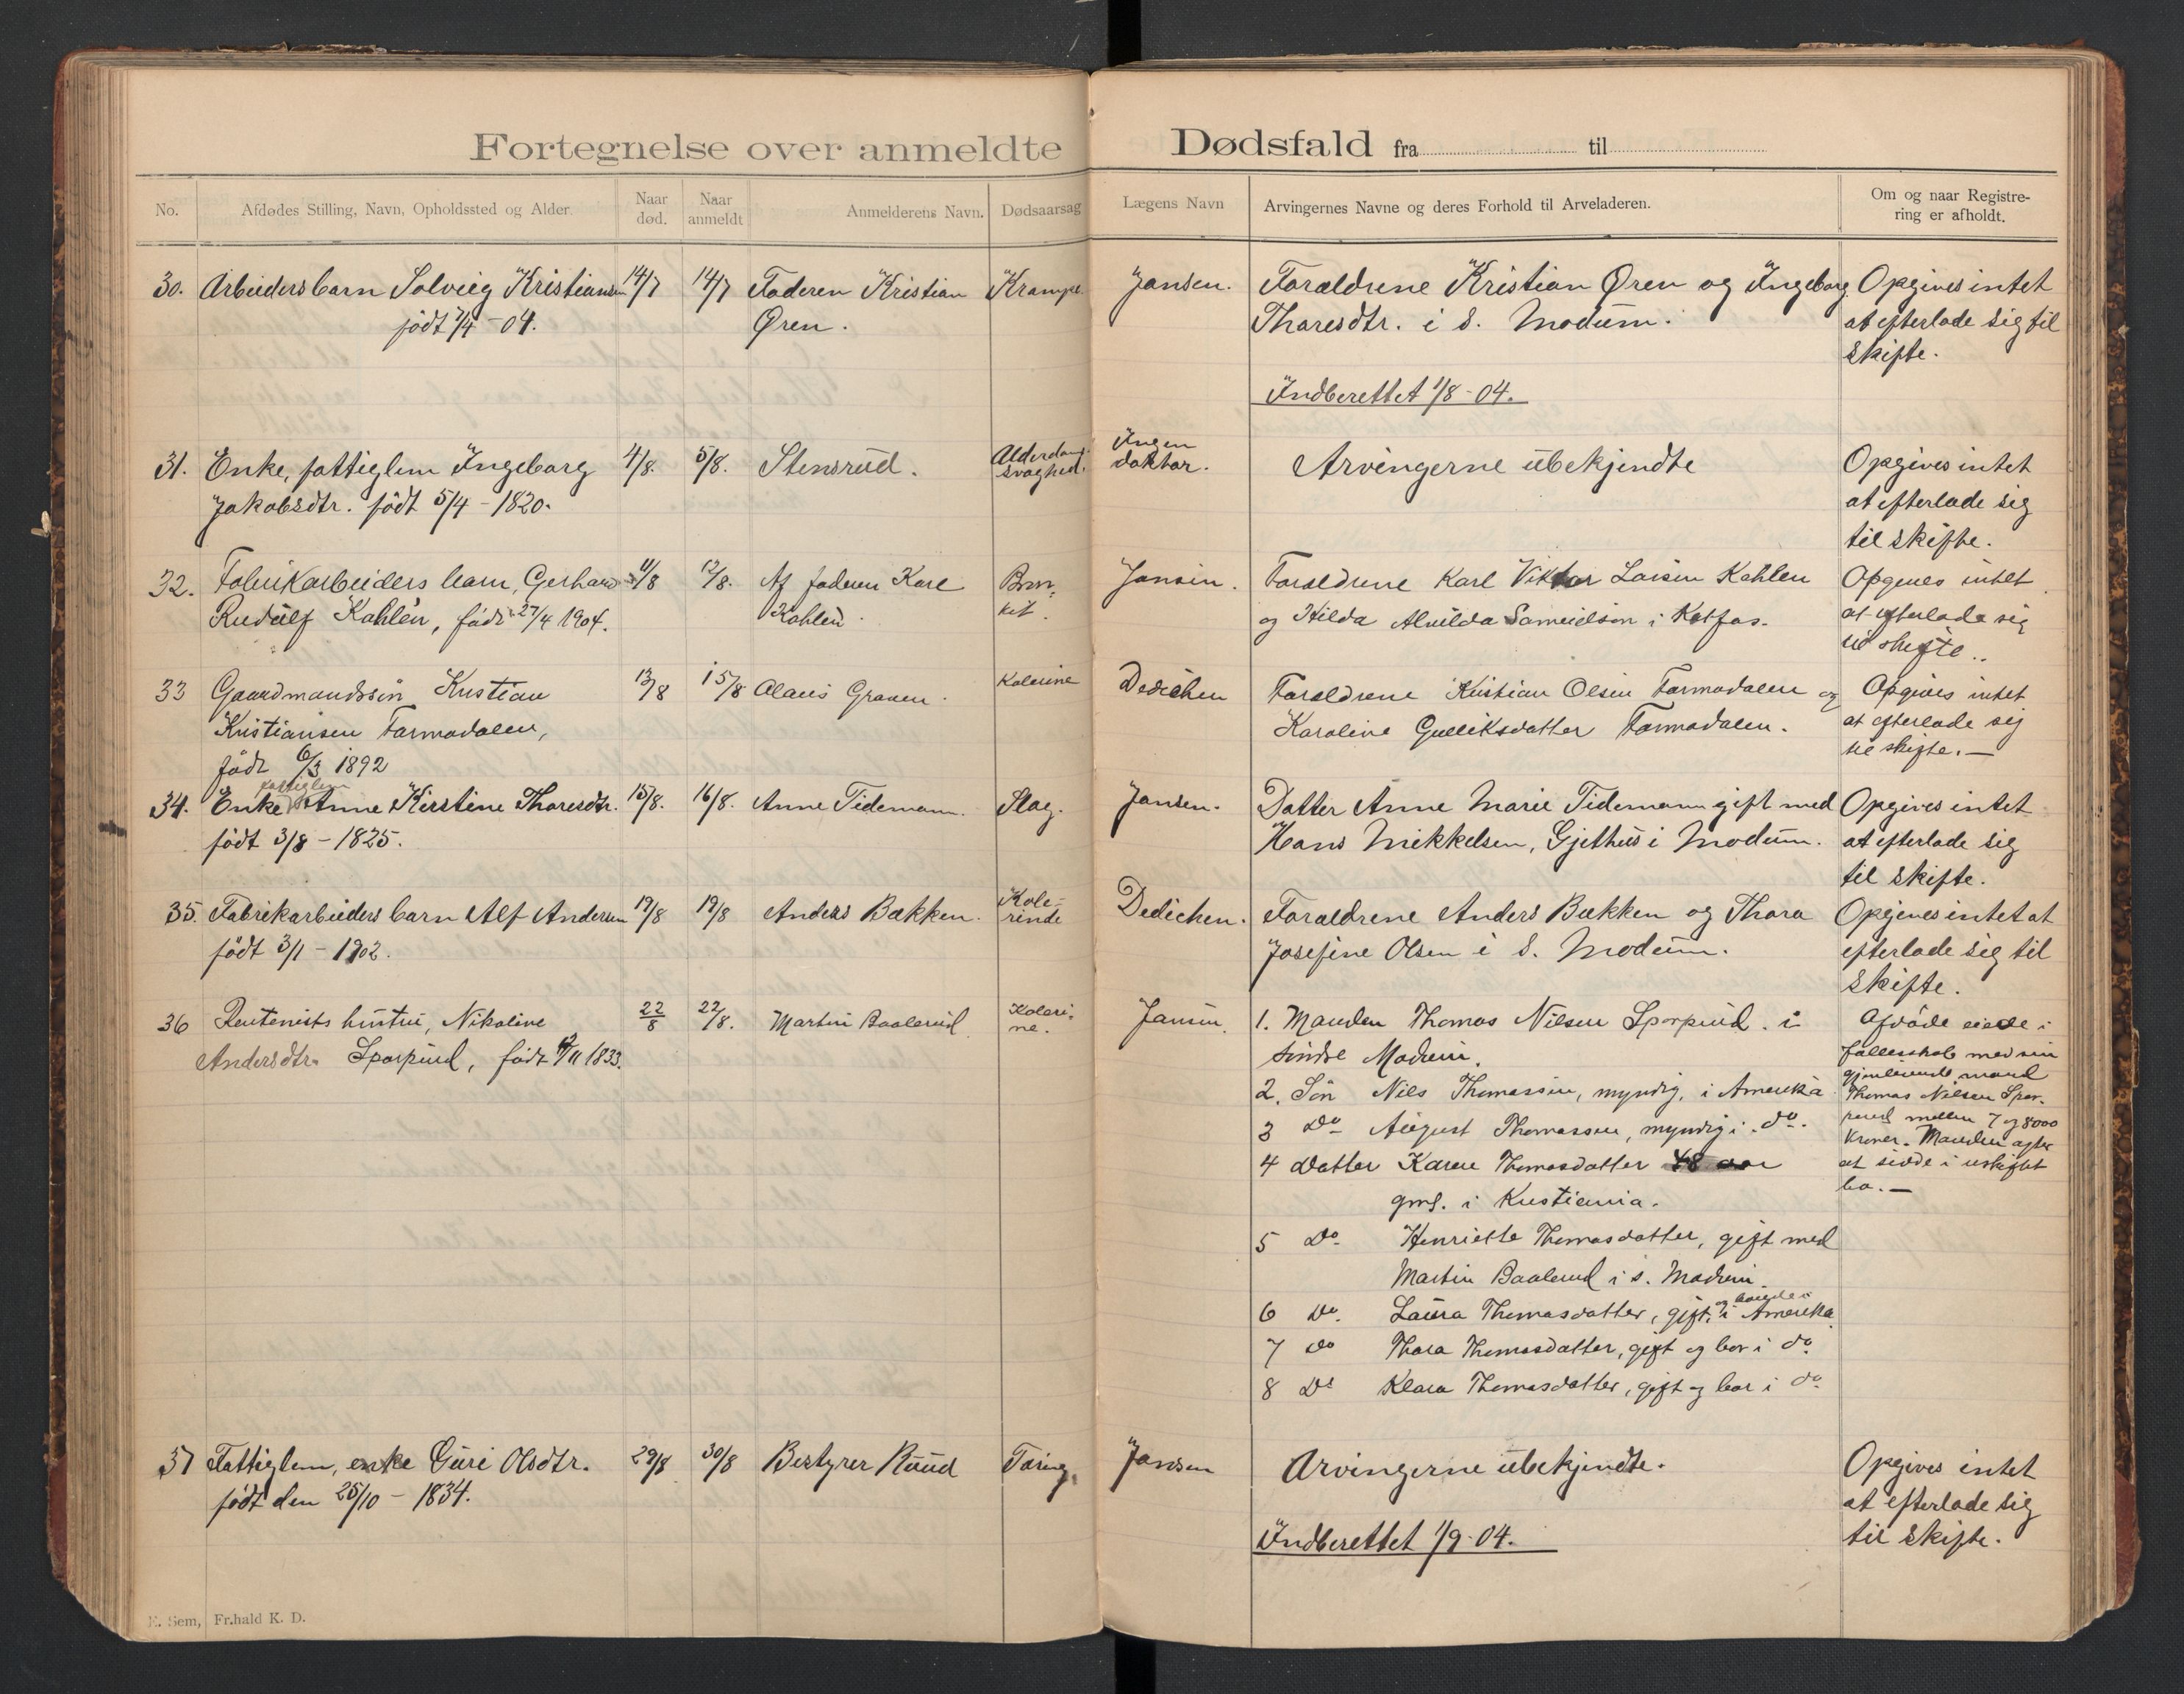 Fortegnelse over anmeldte Dødsfald fra til
No.
Afdødes Stilling, Navn, Opholdssted og Alder.
Naar død.
Naar anmeldt
Anmelderens Navn.
Dødsaarsag
Lægens Navn
Arvingernes Navne og deres Forhold til Arveladeren.
Om og naar Registre-
ring er afholdt.
30. Arbeidersbarn Solveig Kristiansen 14/7 14/7 Faderen Kristian Krampe. Jansen. Forældrene Kristian Øren og Ingeborg Opgives intet
født 7/4 - 04. Øren. Thoresdtr. i S. Modum. at efterlade sig til
skifte.
Indberettet 1/8 - 04.
31. Enke, fattiglem Ingeborg 4/8. 5/8. Stensrud. Alderdoms- Ingen Arvingerne ubekjendte Opgives intet
Jakobsdtr. født 5/4 - 1820. svaghed. doktor. at efterlade sig
til skifte.
32. Fabrikarbeiders barn, Gerhard 11/8 12/8. Af faderen Karl Bron- Jansen. Forældrene Karl Viktor Larsen Kahlen Opgives intet
Rudolf Kahlén, født 27/4 1904. Kahlén. kit. og Hilda Alvilda Samuelson i Kotfos. at efterlade sig
til skifte.
33 Gaardmandssøn Kristian 13/8 15/8 Olaus Graven. Kolerine Dedichen Forældrene Kristian Olsen Farmodalen og Opgives intet
Kristiansen Farmodalen, Karoline Gulliksdatter Farmodalen. at efterlade sig
født 6/3 1892 til skifte. —
34. Enke fattiglem Anne Kirstine Thoresdtr. 15/8. 16/8. Anne Tidemann. Slag. Jansen. Datter Anne Marie Tidemann gift med Opgives intet
født 3/8 - 1825. Hans Mikkelsen, Gjethus i Modum. at efterlade sig
til skifte.
35. Fabrikarbeiders barn Alf Andersen 19/8 19/8 Anders Bakken. Kole- Dedichen. Forældrene Anders Bækken og Thora Opgives intet at
født 3/1 - 1902. rinde Josefine Olsen i S. Modum. efterlade sig til
skifte.
36 Rentenists hustru, Nikoline 22/8 22/8. Martin Baalerud Koleri- Jansen. 1. Manden Thomas Nilsen Sporpind. i Afdøde eiede i
Andersdtr. Sporpind, født /11 1833. ne. søndre Modum. fællesskab med sin
gjenlevende mand
2. Søn Nils Thomassen, myndig, i Amerika Thomas Nilsen Spor-
pind mellem 7 og 8000
3 Do August Thomassen, myndig i do. kroner. Manden agter
4 Datter Karen Thomasdatter 48 aar at sidde i uskiftet
bo. —
gms. i Kristiania.
5 Do. Henriette Thomasdatter, gift med
Martin Baalerud i s. Modum.
6 Do. Laura Thomasdatter, gift, og boende i Amerika
7 do Thora Thomasdatter, gift og bor i do
8 Do Klara Thomasdatter, gift og bor i do
37 Fattiglem, enke Guri Olsdtr. 29/8 30/8 Bestyrer Ruud Tæring. Jansen Arvingerne ubekjendte. Opgives intet
født den 25/10 - 1834. at efterlade sig
Indberettet 1/9 - 04. til skifte.
E. Sem, Fr.hald K. D.